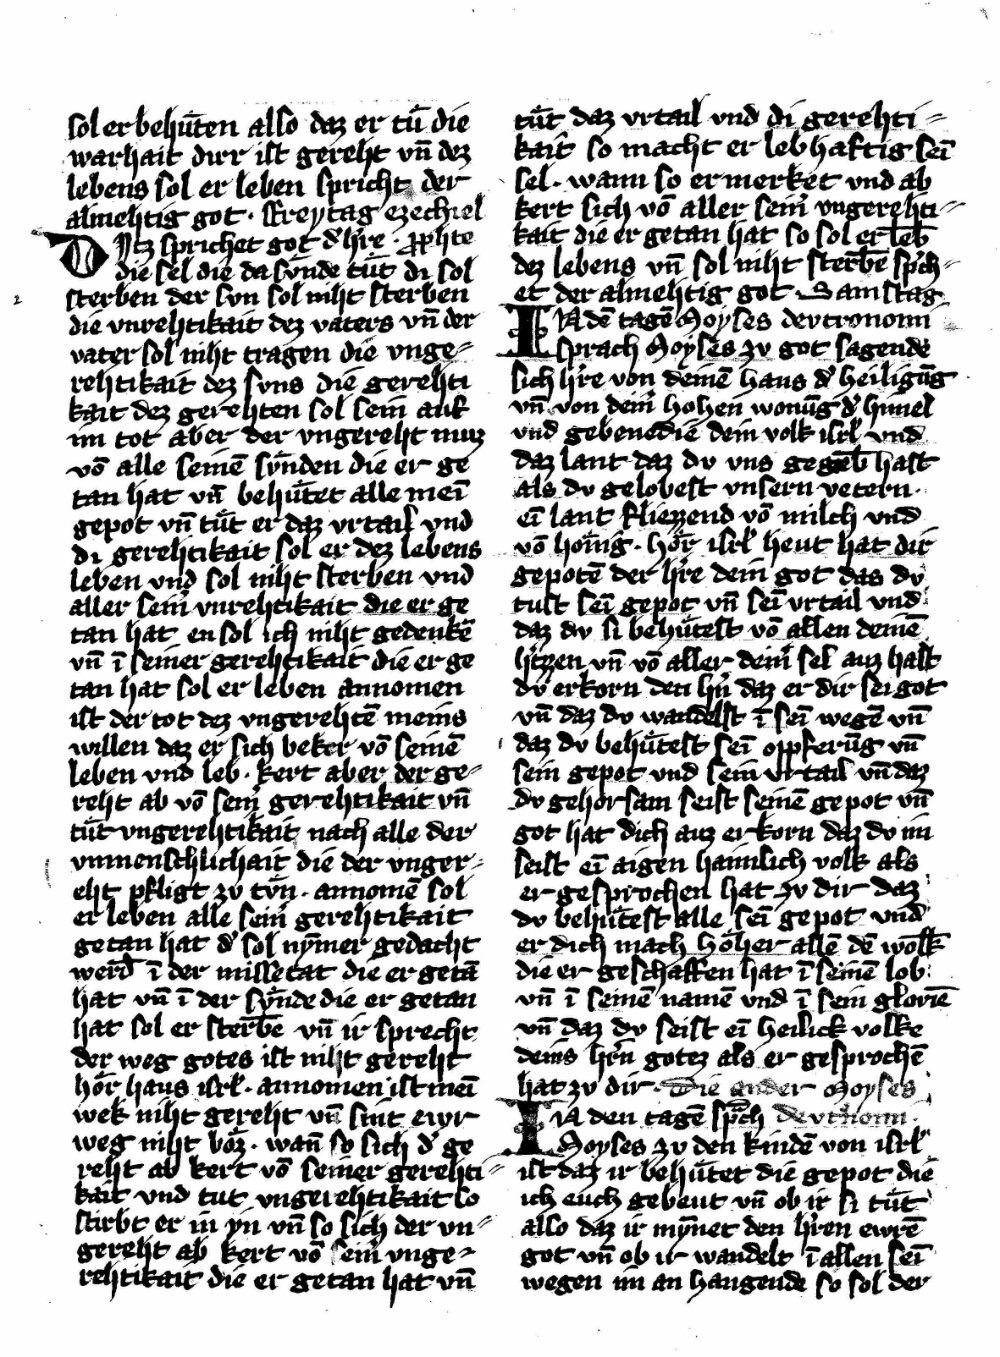 sol er behuͤten also daz er tuͤ die
warhait dirr ist gereht vn̄ dez
lebens sol er leben spricht der
almehtig got · freytag ezechiel
Ditz sprichet got d̓ h̓re · ꝓphete
die sel die da suͤnde tuͤt di sol
sterben der svn sol niht sterben
die vnrehtikait dez vaters vn̄ der
vater sol niht tragen die vnge⸗
rehtikait dez svns die gerehti
kait dez gerehten sol sein auf
im tot aber der vngereht muz
vō alle seinē suͤnden die er ge
tan hat vn̄ behuͤtet alle meī
gepot vn̄ tuͤt er daz vrtail vnd
di gerehtikait sol er dez lebens
leben vnd sol niht sterben vnd
aller sein̓ vnrehtikait die er ge
tan hat en sol ich niht gedenkē
vn̄ ī seiner gerehtikait die er ge
tan hat sol er leben annomen
ist der tot dez vngerehtē meins
willen daz er sich beker vō seinē
leben vnd leb · kert aber der ge⸗
reht ab vō sein̓ gerehtikait vn̄
tuͤt vngerehtikait nach alle der
vnmenschlichait die der vnger⸗
eht pfligt zv tvͤn · annomē sol
er leben alle sein̓ gerehtikait
getan hat d̓ sol nym̄er gedacht
werd̓ ī der missetat die er getā
hat vn̄ ī der syn̄de die er getan
hat sol er sterbē vn̄ ir sprecht
der weg gotes ist niht gereht
hoͤr haus isrl̓ · annomen ist meī
wek niht gereht vn̄ sint ewr
weg niht boͤz · wan̄ so sich d̓ ge
reht ab kert vō seiner gerehti⸗
kait vnd tut vngerehtikait so
stirbt er in yn vn̄ so sich der vn⸗
gereht ab kert vō sein̓ vnge⸗
rehtikait die er getan hat vn̄
tuͤt daz vrtail vnd di gerehti⸗
kait so macht er lebhaftig seī
sel · wann so er merket vnd ab
kert sich vō aller sein̓ vngerehti⸗
kait die er getan hat so sol er leb̄
dez lebens vn̄ sol niht sterbē sp̓ch⸗
et der almehtig got · Samstag
IN dē tagē Moyses devtronomi
sprach Moyses zv got sagende
sich h̓re von deinē haus d̓ heiligūg
vn̄ von dein̓ hohen wonūg d̓ himel
vnd gebenedie dein volk isrl̓ vnd
daz lant daz dv vns gegeb̄ hast
als dv gelobest vnsern vetern ·
eī lant fliezzend vō milch vnd
vō honig · hoͤr isrl̓ heut hat dir
gepotē der h̓re dein got das dv
tust seī gepot vn̄ seī vrtail vnd
daz dv si behuͤtest vō allen deinē
h̓tzen vn̄ vō aller dein̓ sel auz hast
dv erkorn den hn̓ daz er dir sei got
vn̄ daz dv wandelst ī seī wegē vn̄
daz dv behuͤtest seī oppferūg vn̄
sein gepot vnd sein vrtail vn̄ daz
dv gehorsam seist seinē gepot vn̄
got hat dich auz erkorn daz dv im
seist eī aigen haimlich volk als
er gesprochen hat zv dir daz
dv behuͤtest alle seī gepot vnd
er dich mach hoͤher allē dē wolk
die er geschaffen hat ī seinē lob
vn̄ ī seinē namē vnd ī sein gloriē
vn̄ daz dv seist eī heilick volke
deins hr̓n gotez als er gesprochē
hat zv dir · Die ander Moyses
IN den tagē sp̓ch Devtronomi ·
Moyses zv den kindē von isrl̓
ist daz ir behuͤtet die gepot die
ich euch gebeut vn̄ ob ir si tuͤt
also daz ir myn̄et den h̓ren ewrē
got vn̄ ob ir wandelt ī allen seī
wegen im an hangende so sol der